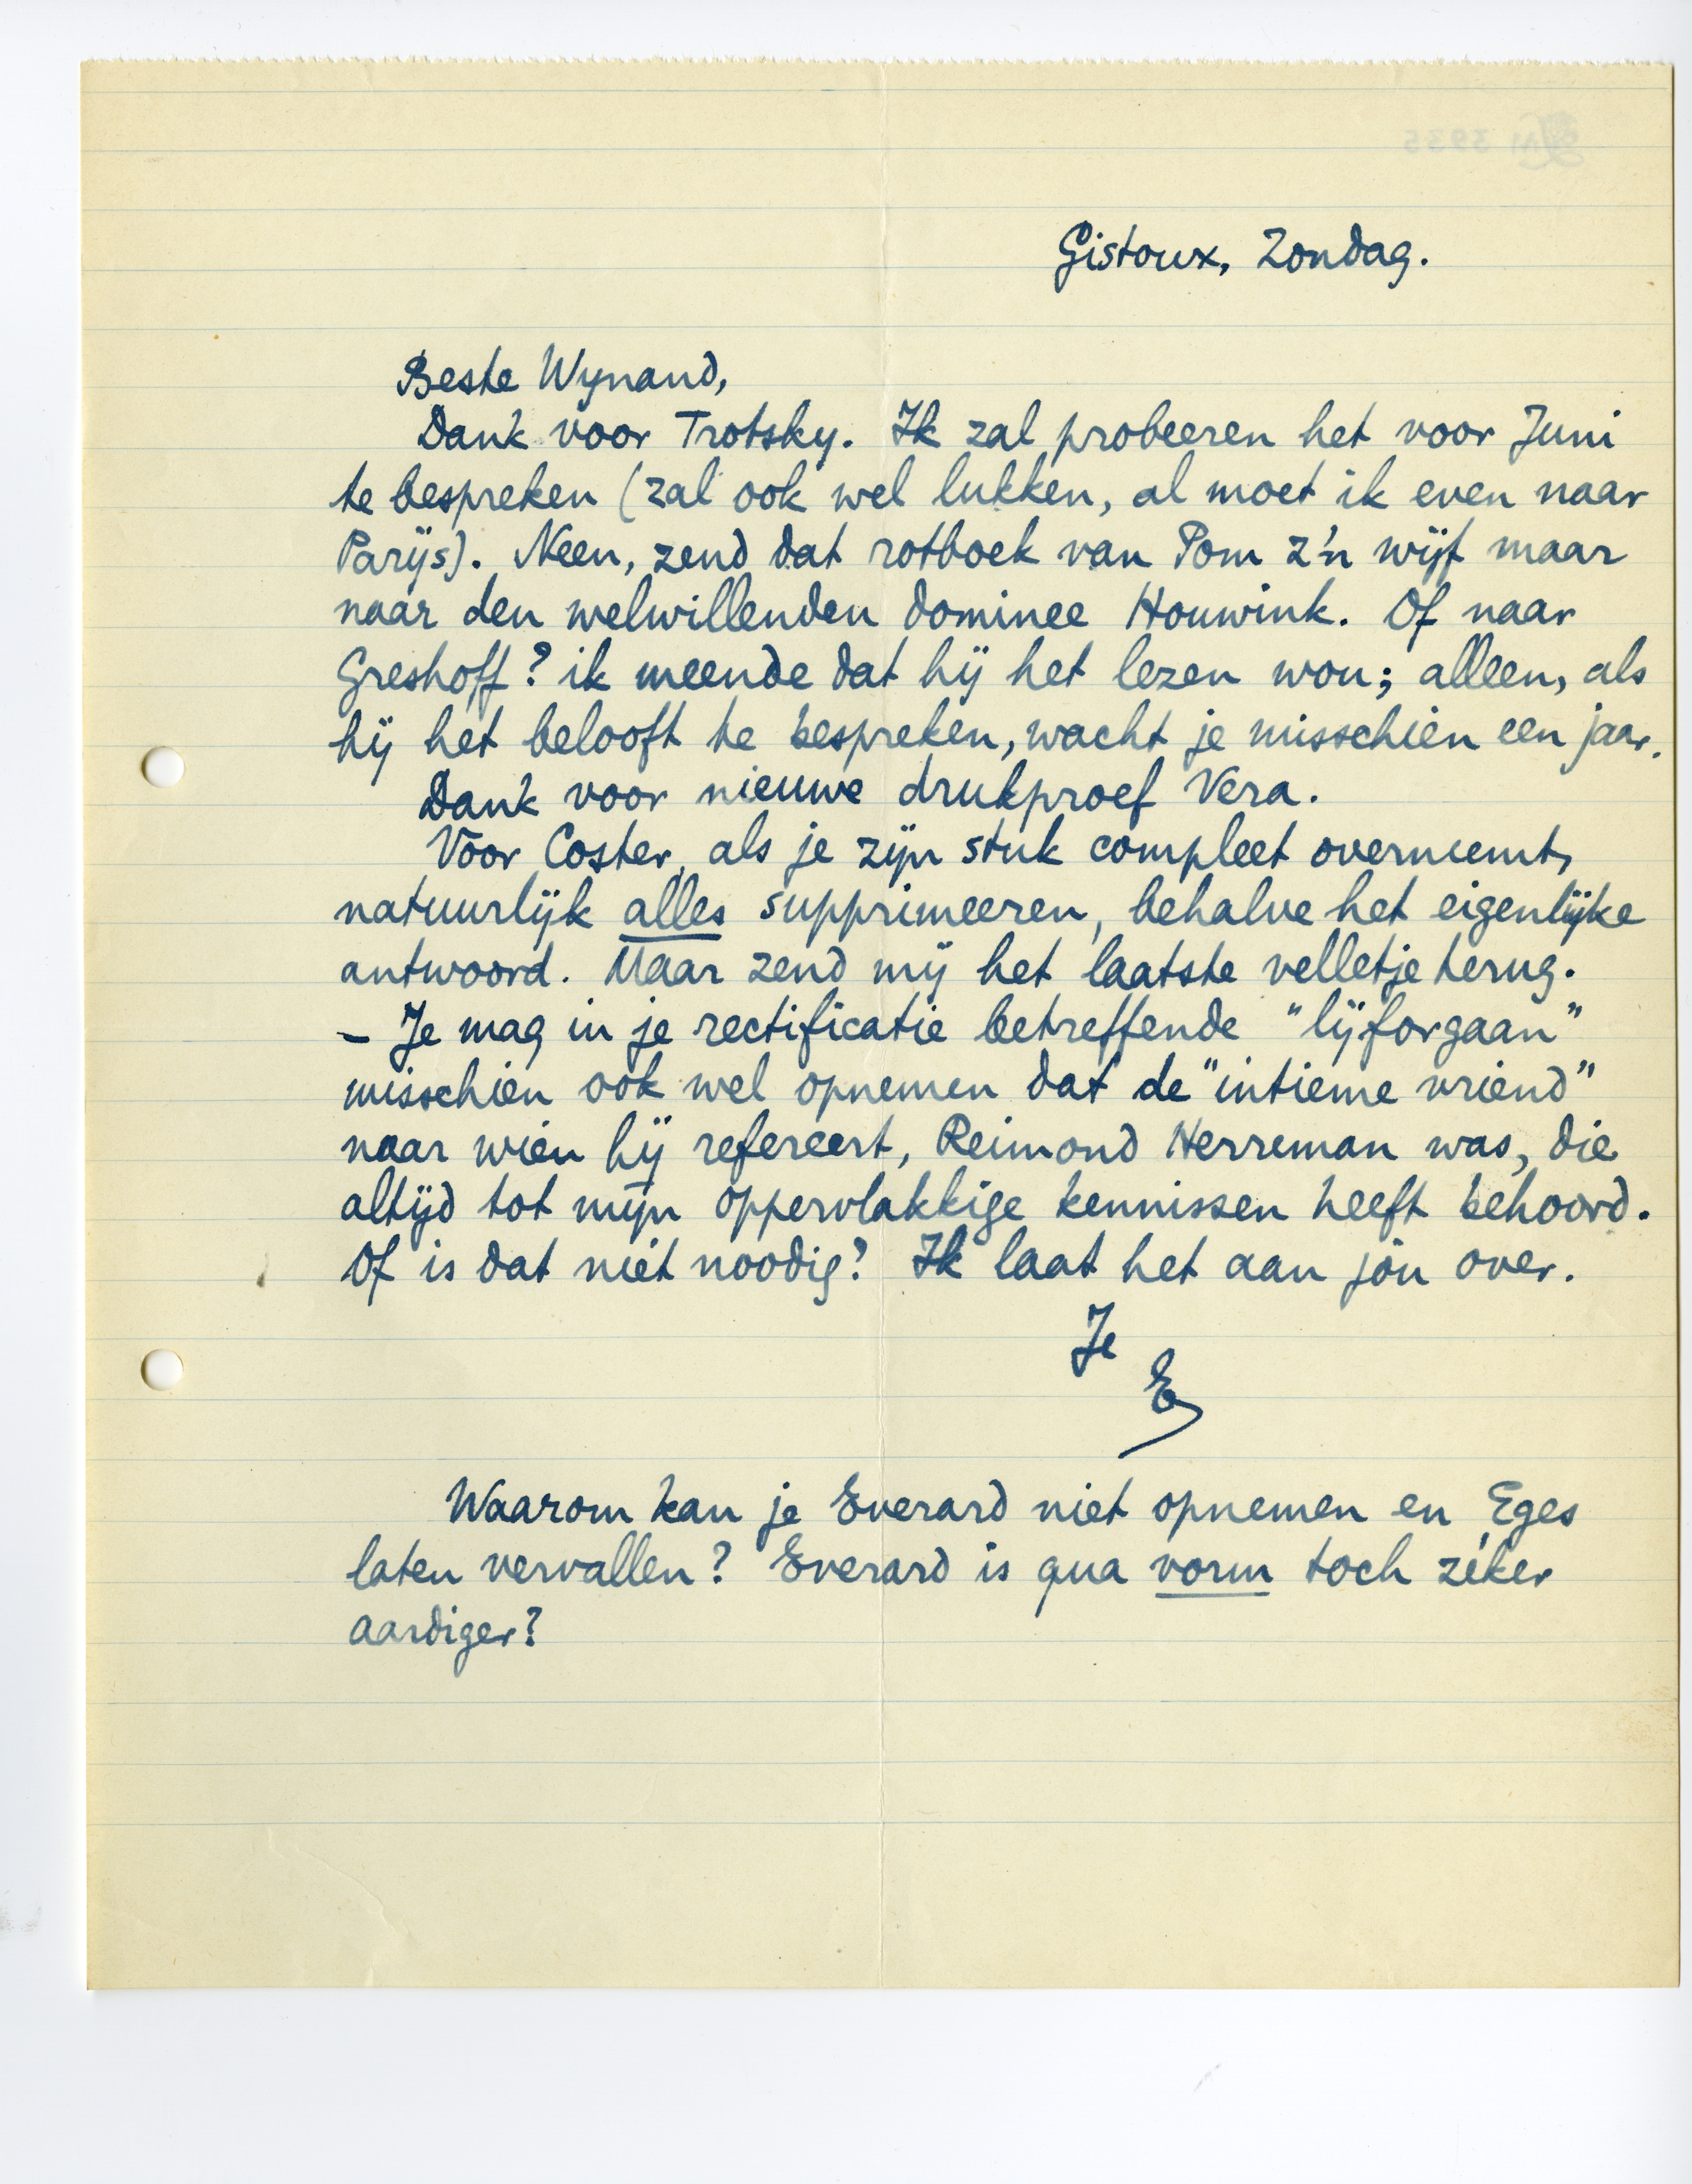 Gistoux, Zondag.
Beste Wynand,
Dank voor Trotsky. Ik zal probeeren het voor Juni
te bespreken (zal ook wel lukken, al moet ik even naar
Parijs). Neen, zend dat rotboek van Pom z'n wijf maar
naar den welwillenden dominee Houwink. Of naar
Greshoff? ik meende dat hij het lezen wou; alleen, als
hij het belooft te bespreken, wacht je misschien een jaar.
Dank voor nieuwe drukproef Vera.
Voor Coster, als je zijn stuk compleet overneemt,
natuurlijk alles supprimeeren, behalve het eigenlijke
antwoord. Maar zend mij het laatste velletje terug.
– Je mag in je rectificatie betreffende "lijforgaan"
misschien ook wel opnemen dat de "intieme vriend"
naar wien hij refereert, Reimond Herreman was, die
altijd tot mijn oppervlakkige kennissen heeft behoord.
Of is dat niet noodig? Ik laat het aan jou over.
Je
E
Waarom kan je Everard niet opnemen en Eges
laten vervallen? Everard is qua vorm toch zéker
aardiger?